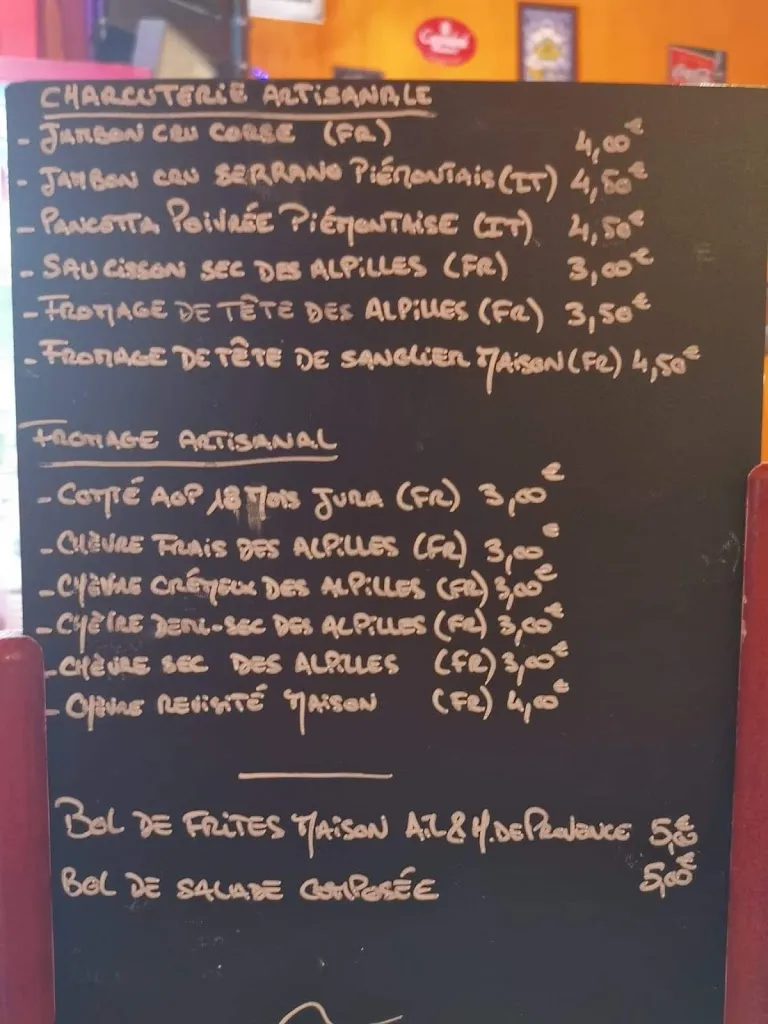 CHARCUTERIE ARTISANALE
- JAMBON CRU CORSE (FR) 4,00€
- JAMBON CRU SERRANO PIÉMONTAIS (IT) 4,50€
- PANCETTA POIVRÉE PIÉMONTAISE (IT) 4,50€
- SAUCISSON SEC DES ALPILLES (FR) 3,00€
- FROMAGE DE TÊTE DES ALPILLES (FR) 3,50€
- FROMAGE DE TÊTE DE SANGLIER MAISON (FR) 4,50€
FROMAGE ARTISANAL
- COMTÉ AOP 18 MOIS JURA (FR) 3,00€
- CHÈVRE FRAIS DES ALPILLES (FR) 3,00€
- CHÈVRE CRÉMEUX DES ALPILLES (FR) 3,00€
- CHÈVRE DEMI-SEC DES ALPILLES (FR) 3,00€
- CHÈVRE SEC DES ALPILLES (FR) 3,00€
- CHÈVRE REVISITÉ MAISON (FR) 4,00€
BOL DE FRITES MAISON AIL & H. DE PROVENCE 5,00€
BOL DE SALADE COMPOSÉE 5,00€